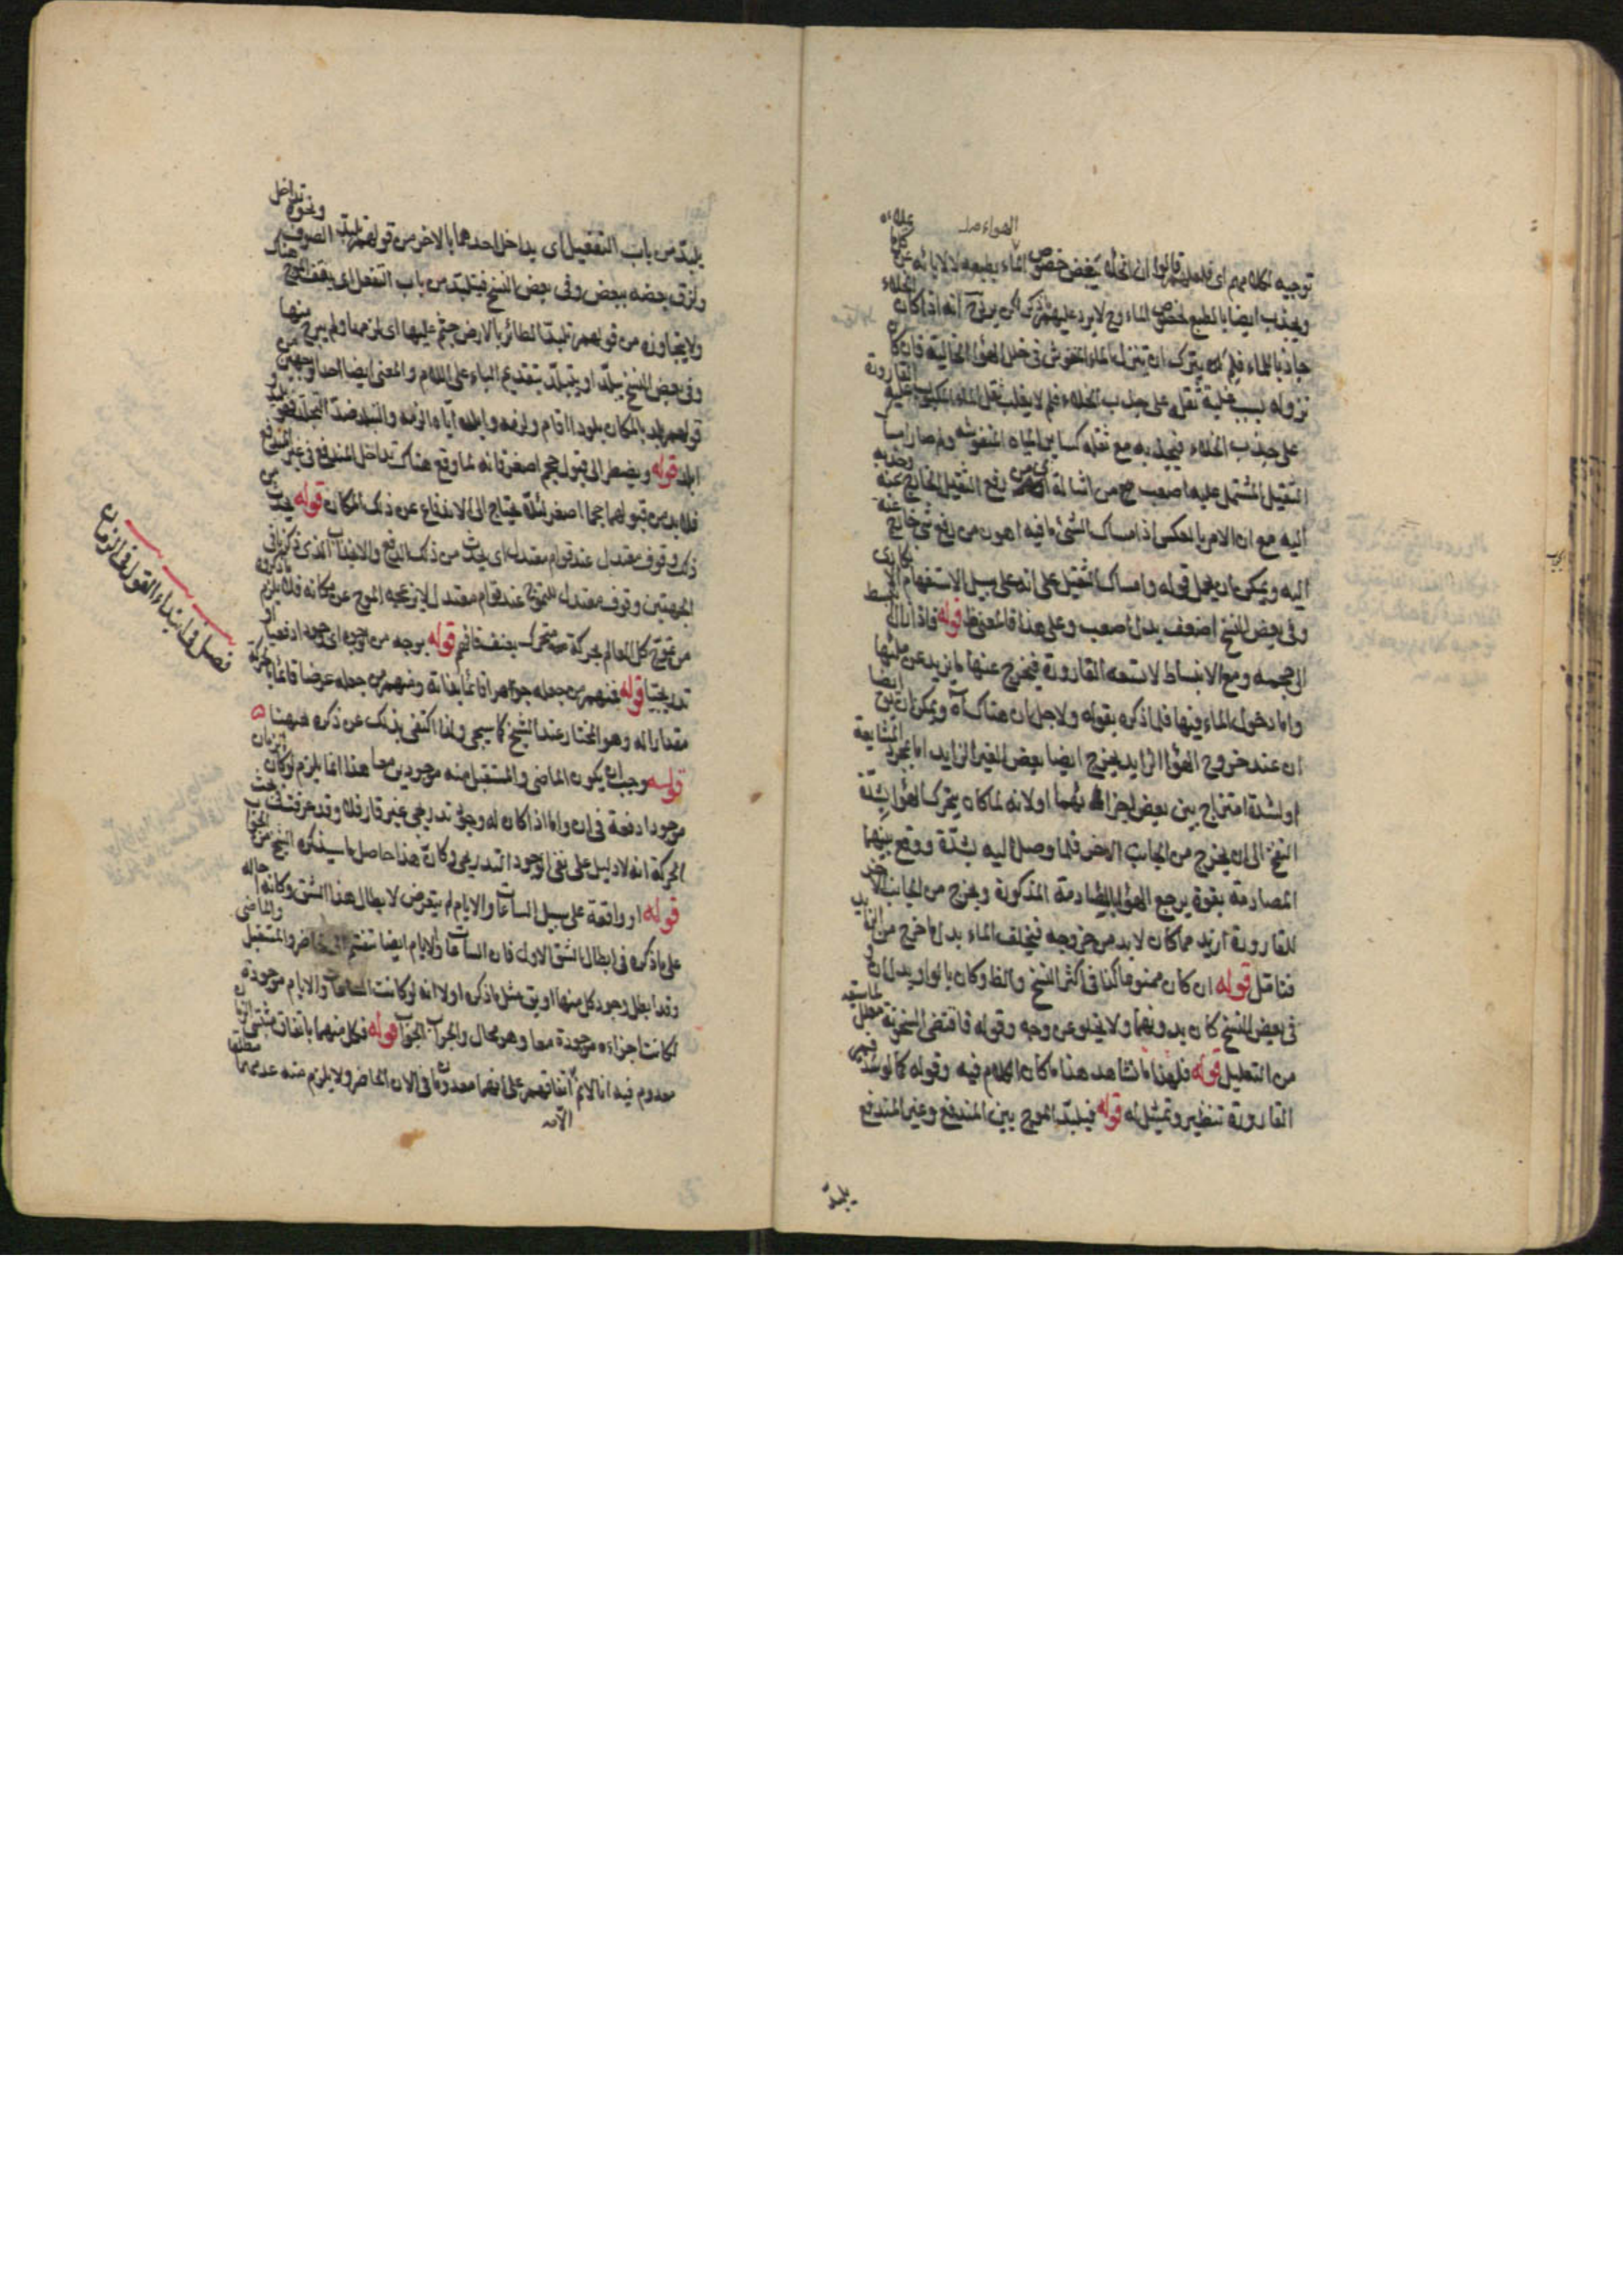 الهواء صلـ
توجيه لكلامهم اى فلعلهم قالوا ان الخلاء يبغض خصوص الماء بطبعه لا لابائه عن
ويجذب ايضا بالطبع لخصوص الماء وح لا يرد عليهم ذلك لكن يرد ح انه اذا كان الخلاء
جاذبا للماء فلم يترك ان ينزل الماء المنفوش فى خلل الهواء الخالية فان كان
نزوله بسبب غلبة ثقله على جذب الخلاء فلم لا يغلب ثقل الماء المكبوب عليه القارورة
على جذب الخلاء فيجذبه مع ثقله كساير المياه المنفوشه ولم صار امساك
الثقيل المشتمل عليه اصعب ح من اشالة اى من رفع الثقيل الخارج عنه وجذبه
اليه مع ان الامر بالعكس اذ امساك الشىء ما فيه اهون من رفع شىء خارج عنه
اليه ويمكن ان يحمل قوله وامساك الثقيل على انه على سبيل الاستفهام الانكارى
وفى بعض النسخ اضعف بدل اصعب وعلى هذا فالمعنى ظ قوله فاذا زال القسط
الى حجمه ومع الانبساط لا تسعه القارورة فيخرج عنها ما يزيد عن ملئها
واما دخول الماء فيها فلما ذكره بقوله ولاجل ان هناك آه ويمكن ان يوجه ايضا
ان عند خروج الهواء الزايد يخرج ايضا بعض الغير الزايد اما لمجرد المشايعة
او لشدة امتزاج بين بعض اجزائهما او لانه لما كان يتحرك الهواء بشدة
النفخ الى ان يخرج من الجانب الاخر فلما وصل اليه بشدة ووقع بينهما
المصادمة بقوة يرجع الهواء بالمصادمة المذكورة ويخرج من الجانب الاخر
للقارورة ازيد مما كان لا بد من خروجه فيخلف الماء بدل ما خرج من الزايد
فتامل قوله ان كان ممنوعا كذا فى اكثر النسخ والظ وكان بالواو بدل ان و
فى بعض النسخ كان بدونهما ولا يخلو عن وجه وقوله فاقتضى السخونة معلل لما سبقه
من التعليل قوله فلهذا ما نشاهد هذا ما كان الكلام فيه وقوله كالوشد
القارورة تنظير وتمثيل له قوله فيلبّد الموج بين المندفع وغير المندفع
يلبد
يلبّد من باب التفعيل اى يداخل احدهما بالاخر من قولهم تلبّد الصوف ونحوه تداخل
ولزق بعضه ببعض وفى بعض النسخ فيتلبّد من باب التفعل اى يقف الموج هناك
ولا يتجاوزه من قولهم تلبّد الطائر بالارض جثم عليها اى لزمها ولم يبرح منها
وفى بعض النسخ يبلّد او يتبلّد بتقديم الباء على اللام والمعنى ايضا احد الوجهين من
قولهم بلد بالمكان بلودا اقام ولزمه وابلده ايّاه الزمه والتبلد ضد التجلد فهو بليد و
ابلد قوله ويضطر الى قبول حجم اصغر فانه لما وقع هناك تداخل المندفع فى غير المندفع
فلا بد من قبولهما حجما اصغر لئلا يحتاج الى الاندفاع عن ذلك المكان قوله يحدث من
ذلك وقوف معتدل عند قوام معتدل اى يحدث من ذلك الدفع والانجذاب الذى ذكرنا فى
الجهتين وقوف معتدل للتموج عند قوام معتدل لا يزعجه الموج عن مكانه فلا يلزم ما ذكروه
من تموج كل العالم بحركة متحرك بعنف فافهم قوله بوجه من الوجوه اى وجود ادفعيا او
تدريجيا قوله فمنهم من جعله جوهرا قائما بذاته ومنهم من جعله عرضا قائما بالحركة
مقدارا له وهو المختار عند الشيخ كما سيجى ولذا اكتفى بذلك عن ذكره ههنا
قوله وجب ان يكون الماضى والمستقبل منه موجودين معا هذا انما يلزم لو كان الزمان
موجودا دفعة فى ان واما اذا كان له وجود تدريجى غير قار فلا وقد عرفت فى بحث
الحركة انه لا دليل على نفى الوجود التدريجى وكانّ هذا حاصل ما سيذكره الشيخ من الجواب
قوله او واقعة على سبيل الساعات والايام لم يتعرض لابطال هذا الشق وكانه احاله
على ما ذكره فى ابطال الشق الاول فان الساعات والايام ايضا تنقسم الى الحاضر والمستقبل والماضى
وقد ابطل وجود كل منها او يق مثل ما ذكره اولا انه لو كانت الساعات والايام موجودة
لكانت اجزاءه موجودة معا وهو محال والجواب الجواب قوله فكل منهما باتفاق مثبتى الزمان
معدوم فيه انا لا نم اتفاقهم على انهما معدومان فى الان الحاضر ولا يلزم منه عدمهما مطلقا
الا
فصل فى ابتداء القول فى الزمان